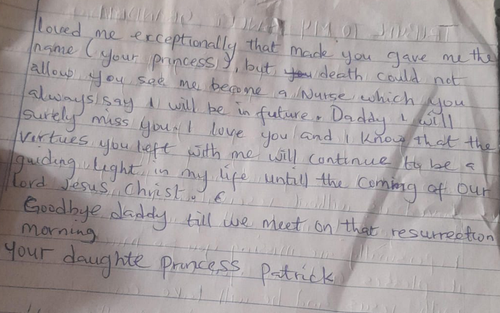 loved me exceptionally that made you gave me the
name (your princess), but death could not
allow you see me become a Nurse which you
always say I will be in future. Daddy I will
surely miss you. I love you and I know that the
virtues you left with me will continue to be a
guiding light in my life untill the coming of our
lord Jesus Christ.
Goodbye daddy till we meet on that resurrection
morning
your daughte princess Patrick